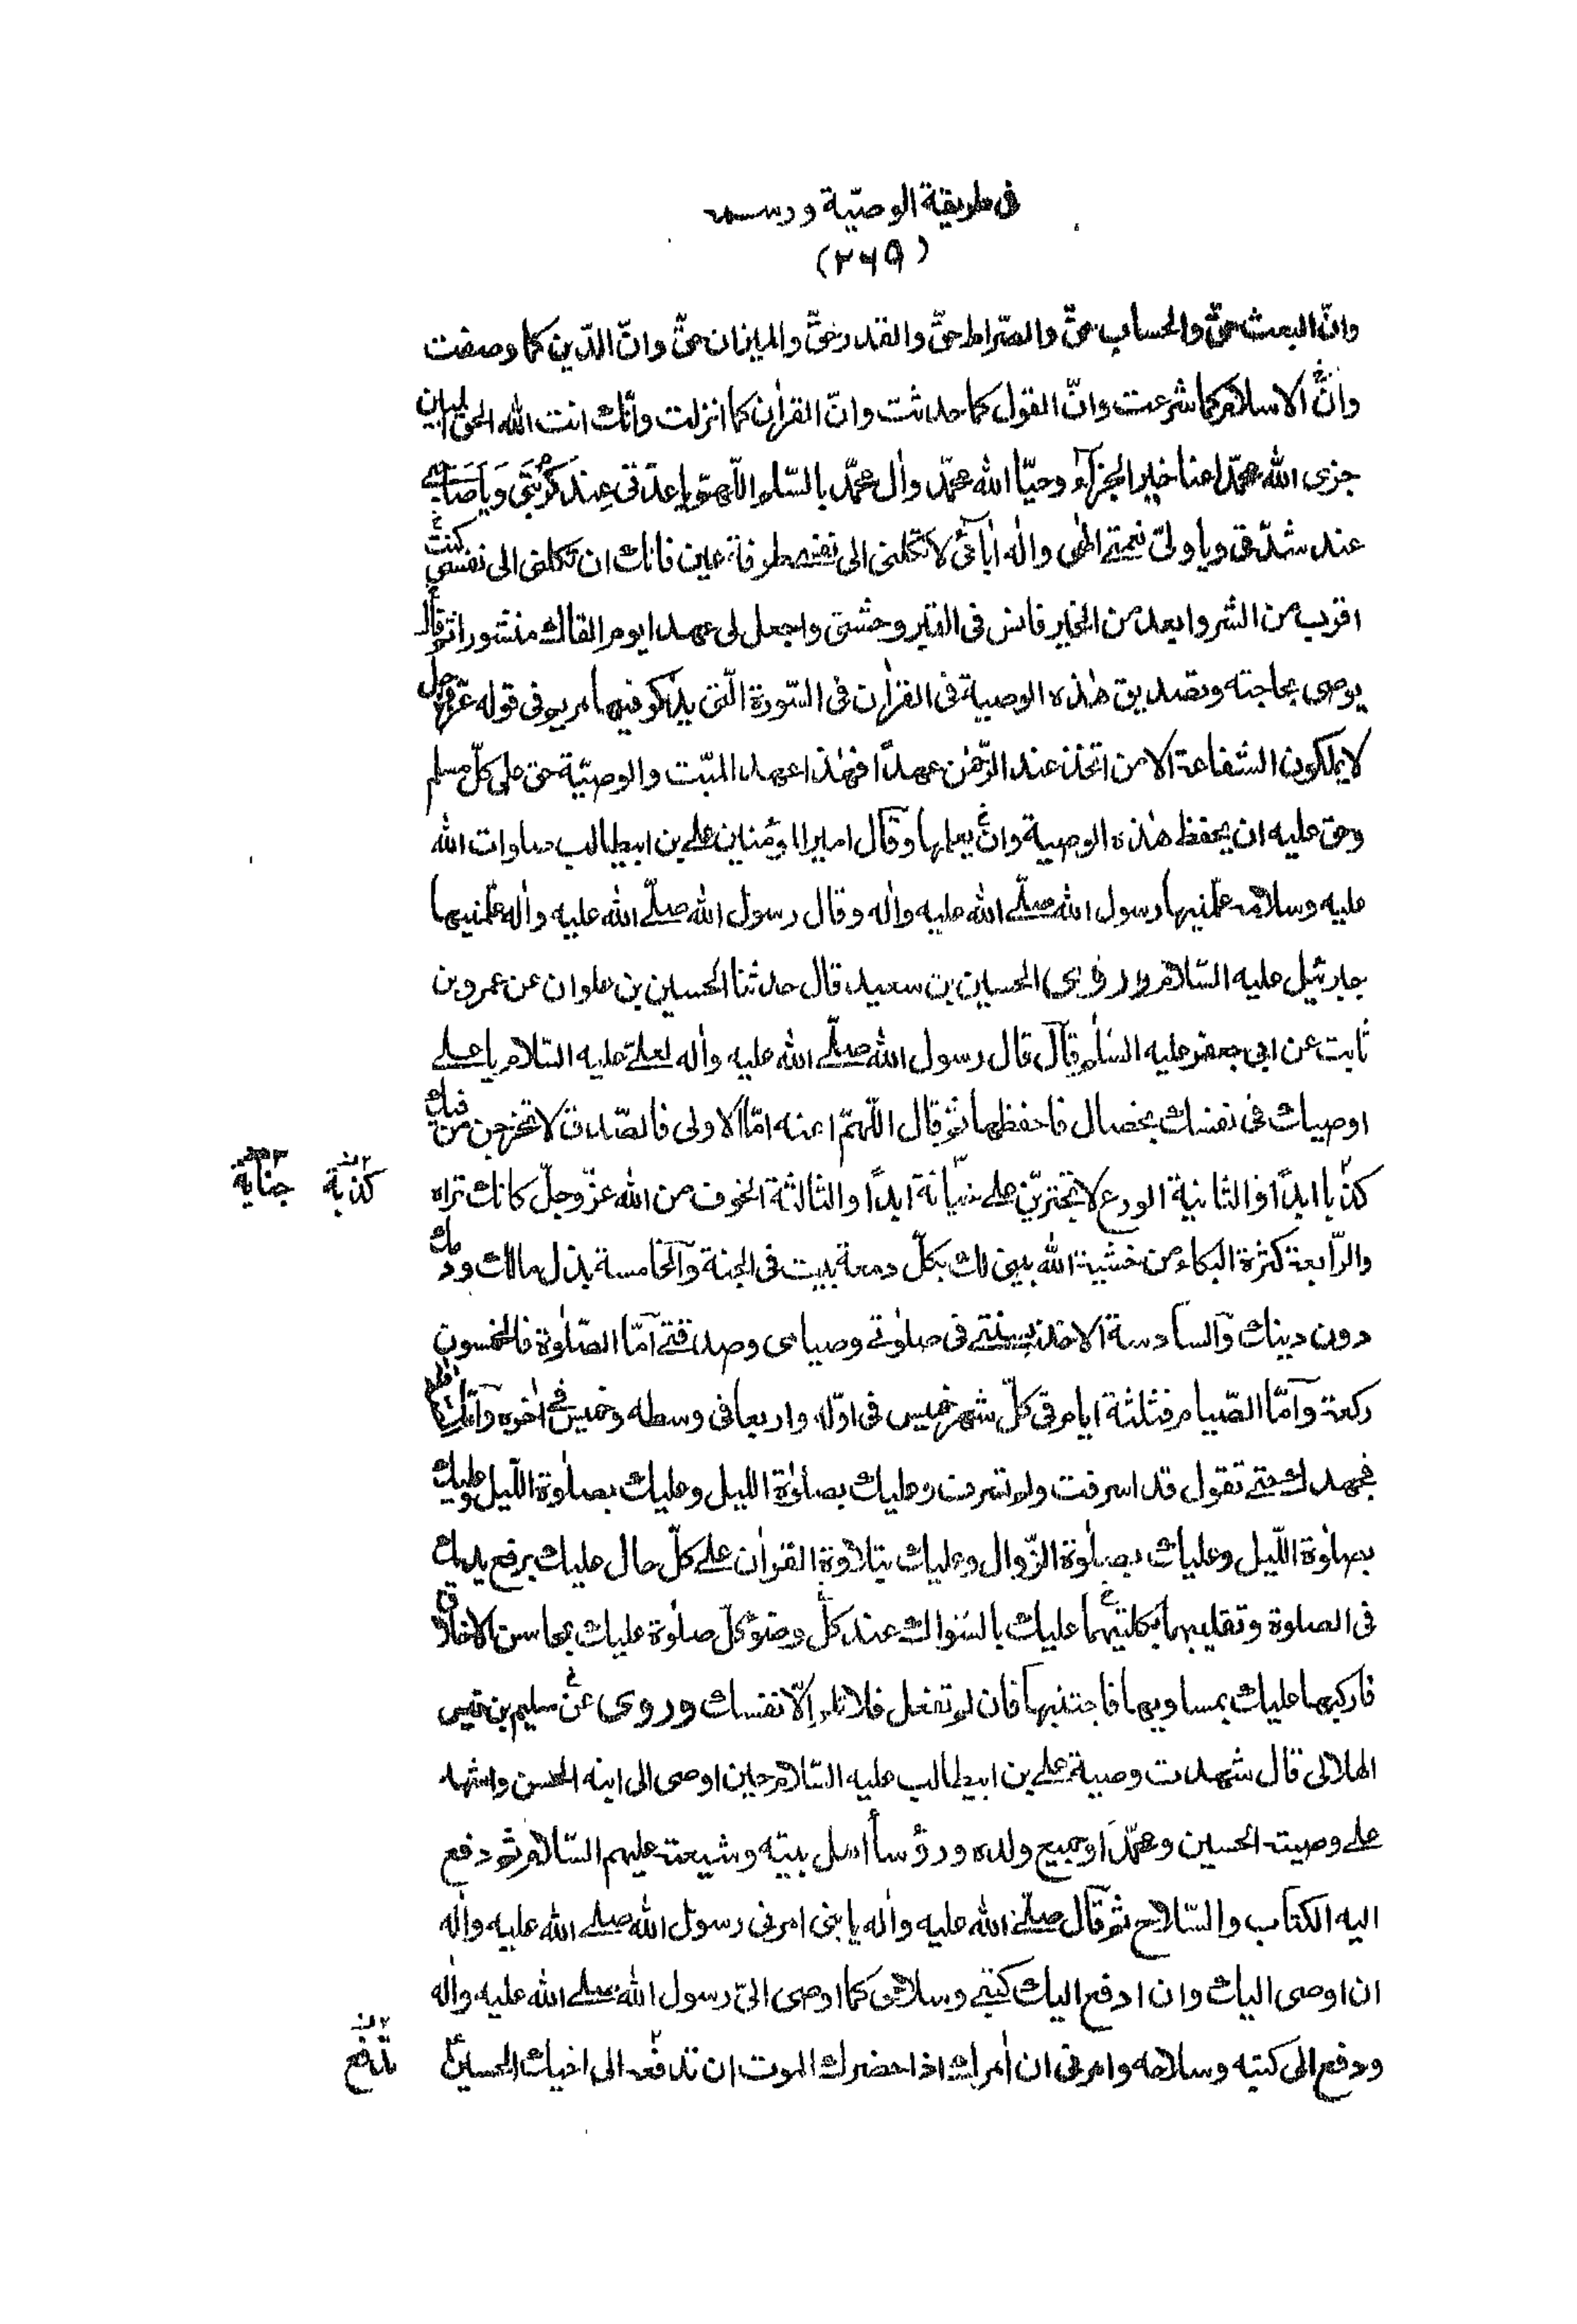 في طريقة الوصيّة ورسمه
(٢٦٩)
وانّ البعث حقّ والحساب حقّ والصّراط حقّ والقدر حقّ والميزان حقّ وانّ الدّين كما وصفت
وانّ الاسلام كما شرعت وانّ القول كما حدثت وانّ القرآن كما انزلت وانّك انت الله الحق المبين
جزى الله محمّدا عنا خير الجزاء وحيّا الله محمّد وآل محمّد بالسّلم اللّهمّ يا عدّتي عِندَ كُربَتي وَيا صَاحبي
عند شدّتي ويا وليّ نعمتي الهٰي واله آبائي لا تكلني الى نفسي طرفة عين فانك ان تكلني الى نفسي كنت
اقرب من الشر وابعد من الخير فانس في القبر وحشتي واجعل لي عهدا يوم القاك منشورا ثم قال
يوصى بحاجته وتصديق هٰذه الوصية في القرآن في السّورة الّتي يذكر فيها مريم في قوله عزّ وجل
لا يملكون الشفاعة الا من اتخذ عند الرّحمٰن عهداً فهٰذا عهد الميّت والوصيّة حق على كلّ مسلم
وحق عليه ان يحفظ هٰذه الوصية وان يعلمها وقال امير المؤمنين علي بن ابيطالب صلوات الله
عليه وسلامه علّمنيها رسول الله صلّى الله عليه وآله وقال رسول الله صلّى الله عليه وآله علّمنيها
جبرئيل عليه السّلام وروى الحسين بن سعيد قال حدثنا الحسين بن علوان عن عمرو بن
ثابت عن ابي جعفر عليه السّلم قال قال رسول الله صلّى الله عليه وآله لعليّ عليه السّلام يا علي
اوصيك في نفسك بخصال فاحفظها ثم قال اللّهمّ اعنه امّا الاولى فالصّدق لا تخرجن من فيك
كذبا ابداً والثانية الورع لا تجتريّن على خيانة ابداً والثالثة الخوف من الله عزّ وجلّ كانك تراه
كذبة جناية
والرّابعة كثرة البكاء من خشية الله يبنى لك بكلّ دمعة بيت في الجنة والخامسة بذل مالك ودمك
دون دينك والسادسة الاخذ بسنتي في صلوٰتي وصيامي وصدقتي امّا الصّلوٰة فالخمسون
ركعة وامّا الصّيام فثلثة ايام في كلّ شهر خميس في اوّله واربعا في وسطه وخميس في آخره وامّا الصدقة
فجهدك حتى تقول قد اسرفت ولم تسرف وعليك بصلوٰة الليل وعليك بصلوٰة اللّيل وعليك
بصلوٰة اللّيل وعليك بصلوٰة الزّوال وعليك بتلاوة القرآن على كلّ حال عليك برفع يديك
في الصلوة وتقليبهما بكلتيهما عليك بالسّواك عند كلّ وضوء كلّ صلوٰة عليك بمحاسن الاخلاق
فاركبها عليك بمساويها فاجتنبها فان لم تفعل فلا تلم اِلّا نفسك وروى عن سليم بن قيس
الهلالي قال شهدت وصية علي بن ابيطالب عليه السّلام حين اوصى الى ابنه الحسن واشهد
على وصيته الحسين ومحمّدَا وجميع ولده ورؤسأ اهل بيته وشيعته عليهم السّلام ثم دفع
اليه الكتاب والسّلاح ثم قال صلّى الله عليه وآله يا بني امرني رسول الله صلى الله عليه وآله
ان اوصى اليك وان ادفع اليك كتبي وسلاحي كما اوصى اليّ رسول الله صلى الله عليه وآله
ودفع الى كتبه وسلاحه وامرني ان آمرك اذا حضرك الموت ان تدفعه الى اخيك الحسين
تدفع